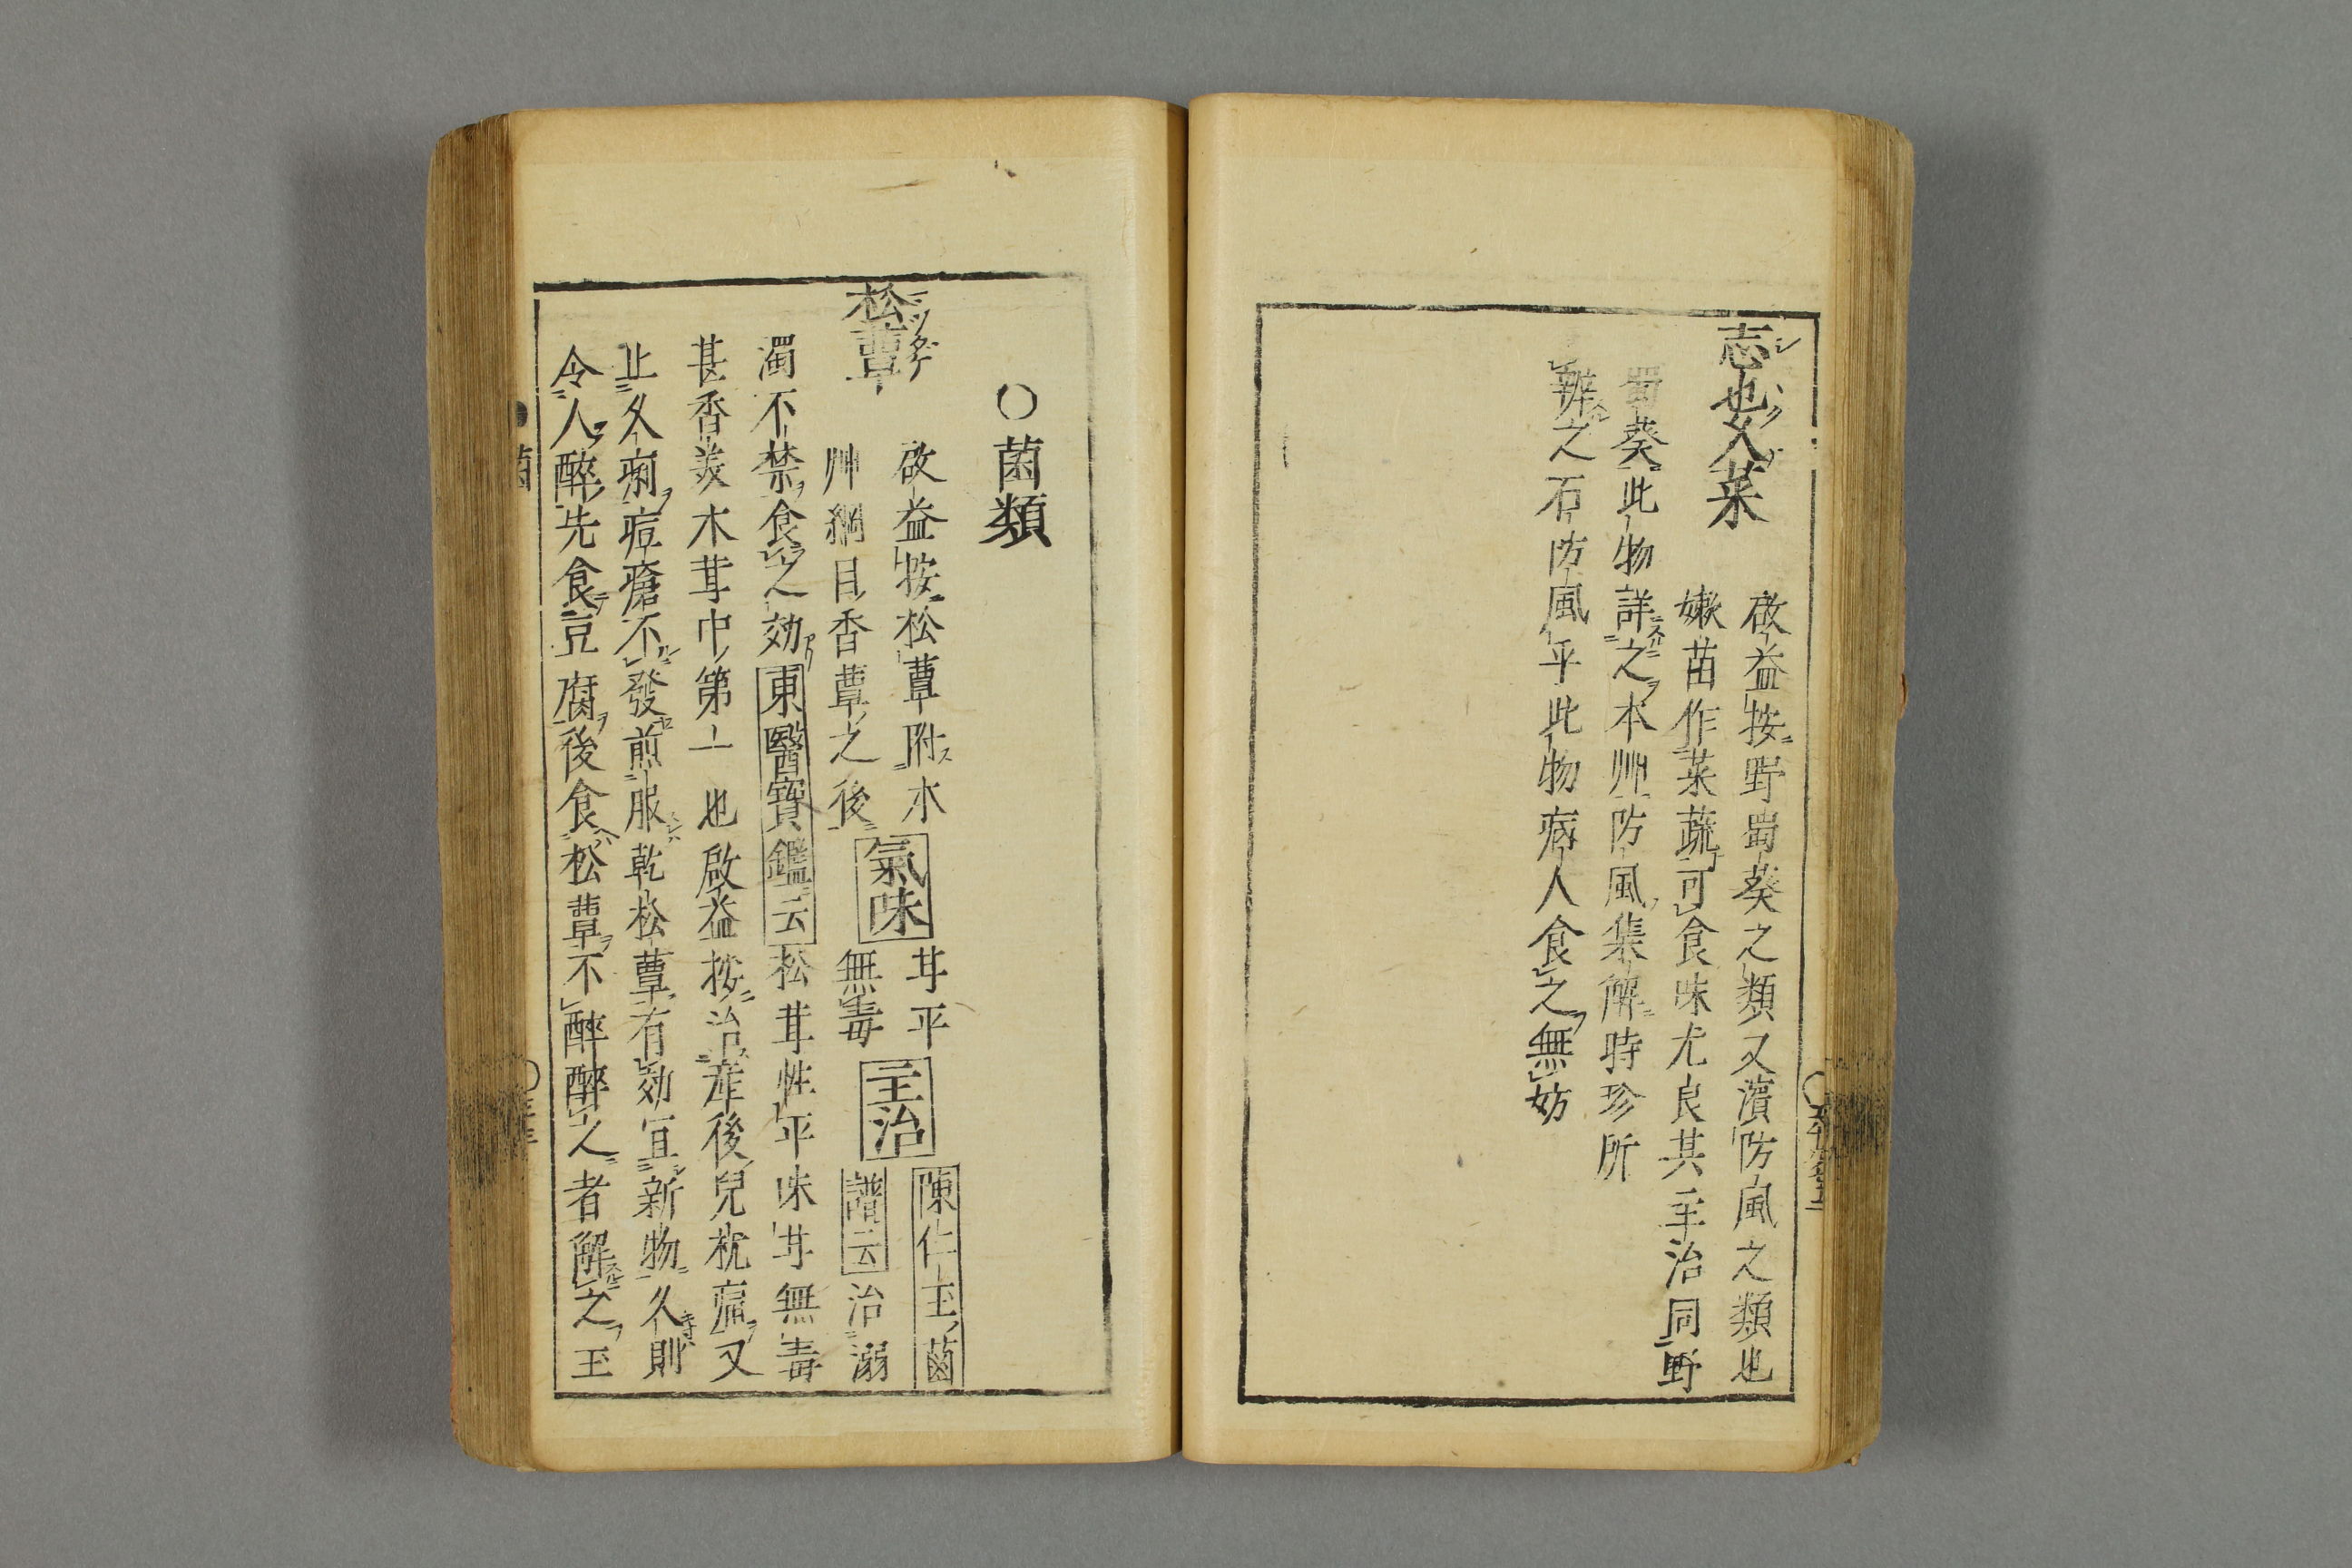 志也久菜
啟益按野蜀葵之類又濱防風之類也
嫩苗作菜蔬可食味尤良其主治同野
蜀葵此物詳之本艸防風集解時珍所
辨之石防風乎此物病人食之無妨
○菌類
松蕈
啟益按松蕈附本
艸綱目香蕈之後
氣味
甘平
無毒
主治
陳仁玉菌
譜云治溺
濁不禁食之効東醫寶鑑云松茸性平味甘無毒
甚香美木茸中第一也啟益按治産後兒枕痛又
止久痢痘瘡不發煎服乾松蕈有効宜新物久則
令人醉先食豆腐後食松蕈不醉醉之者解之玉